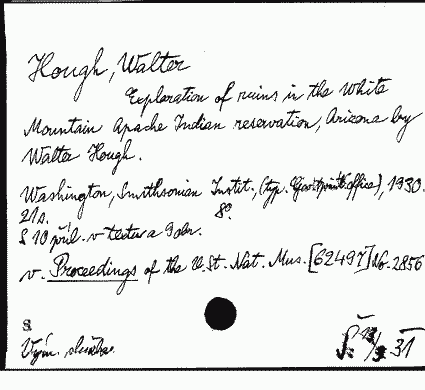 Hough, Walter
Exploration of ruins in the White
Mountain Apache Indian reservation, Arizona by
Walter Hough.
Washington, Smithsonian Instit., (typ. Gov. print. office), 1930.
21s. 8°.
S 10 příl. v textu a 9 obr.
v. Proceedings of the U. St. Nat. Mus. [62497] No. 2856
S
Vým.
31